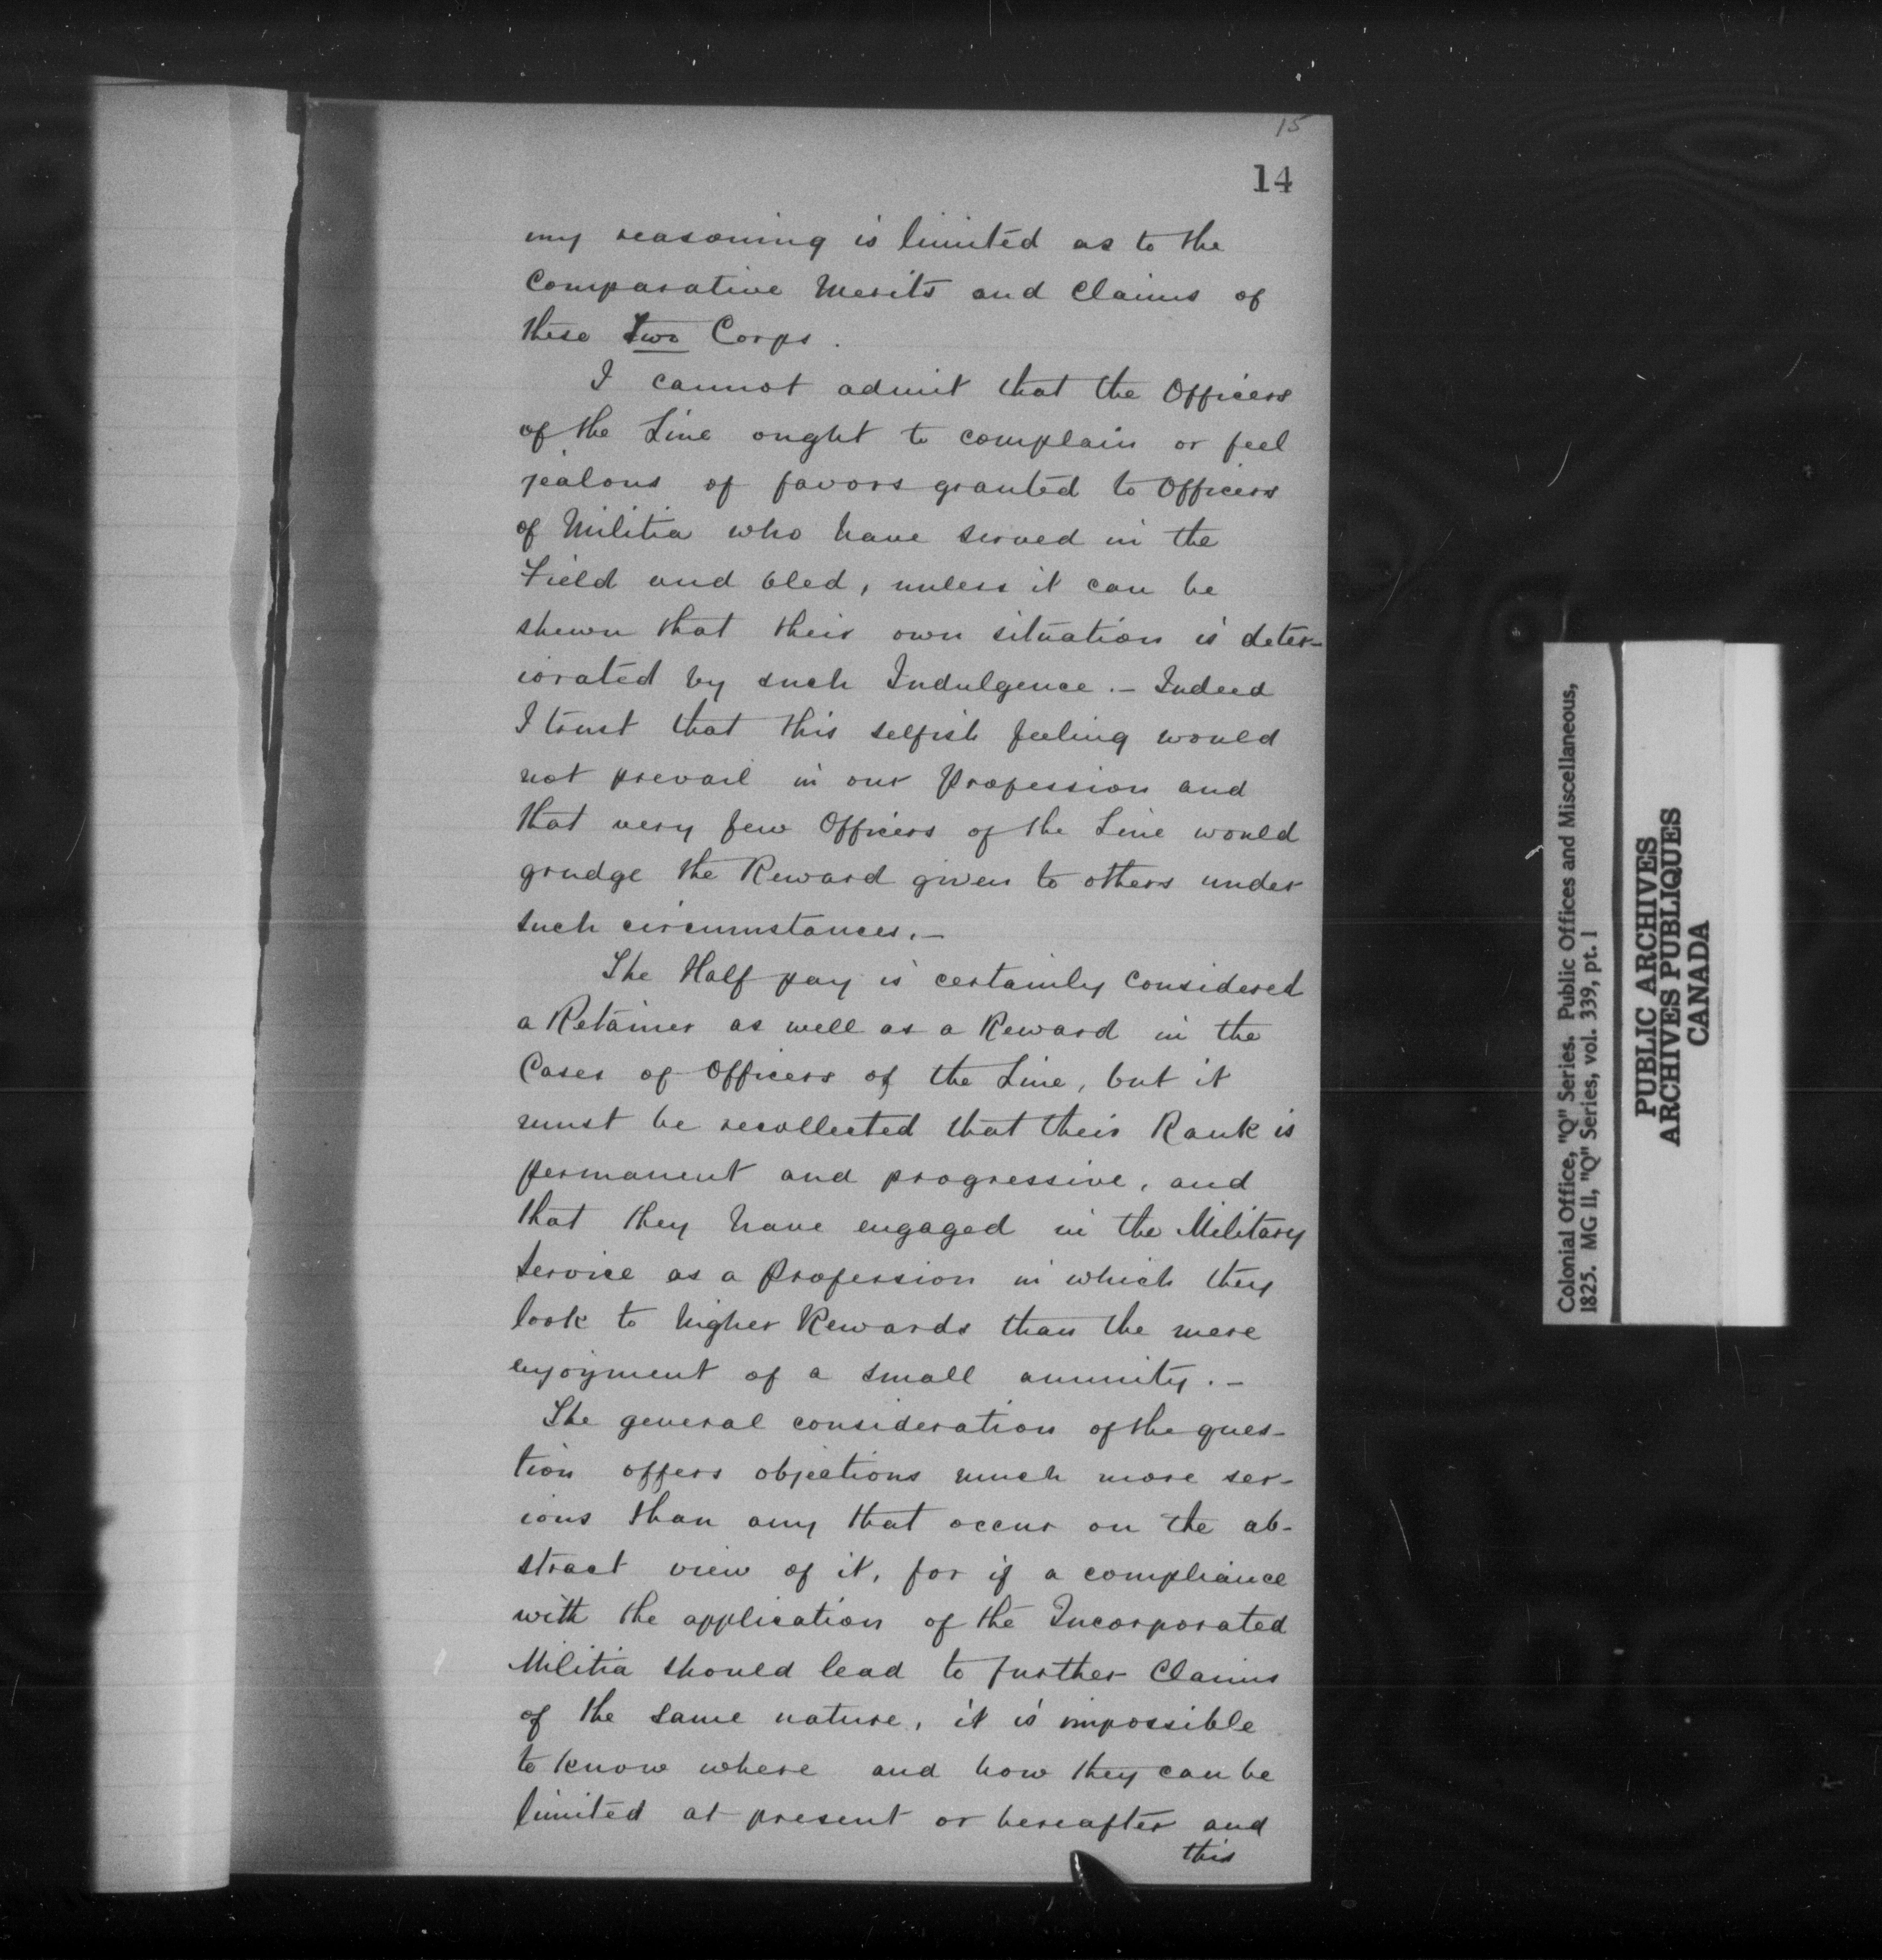 15
14
my reasoning is limited as to the
Comparative Merits and Claims of
these Two Corps.
I cannot admit that the Officers
of the Line ought to complain or feel
jealous of favors granted to Officers
of Militia who have served in the
Field and bled, unless it can be
shewn that their own situation is deter-
iorated by such Indulgence. - Indeed
I trust that this selfish feeling would
not prevail in our Profession and
that very few Officers of the Line would
grudge the Reward given to others under
such circumstances. -
The Half pay is certainly considered
a Retainer as well as a Reward in the
Cases of Officers of the Line, but it
must be recollected that their Rank is
permanent and progressive, and
that they have engaged in the Military
Service as a Profession in which they
look to higher Rewards than the mere
enjoyment of a small annuity. -
The general consideration of the ques-
tion offers objections much more ser-
ious than any that occur on the ab-
stract view of it, for if a compliance
with the application of the Incorporated
Militia should lead to further Claims
of the same nature, it is impossible
to know where and how they can be
limited at present or hereafter and
this
Colonial Office, "Q" Series. Public Offices and Miscellaneous,
1825. MG 11, "Q" Series, vol. 339, pt. 1
PUBLIC ARCHIVES
ARCHIVES PUBLIQUES
CANADA